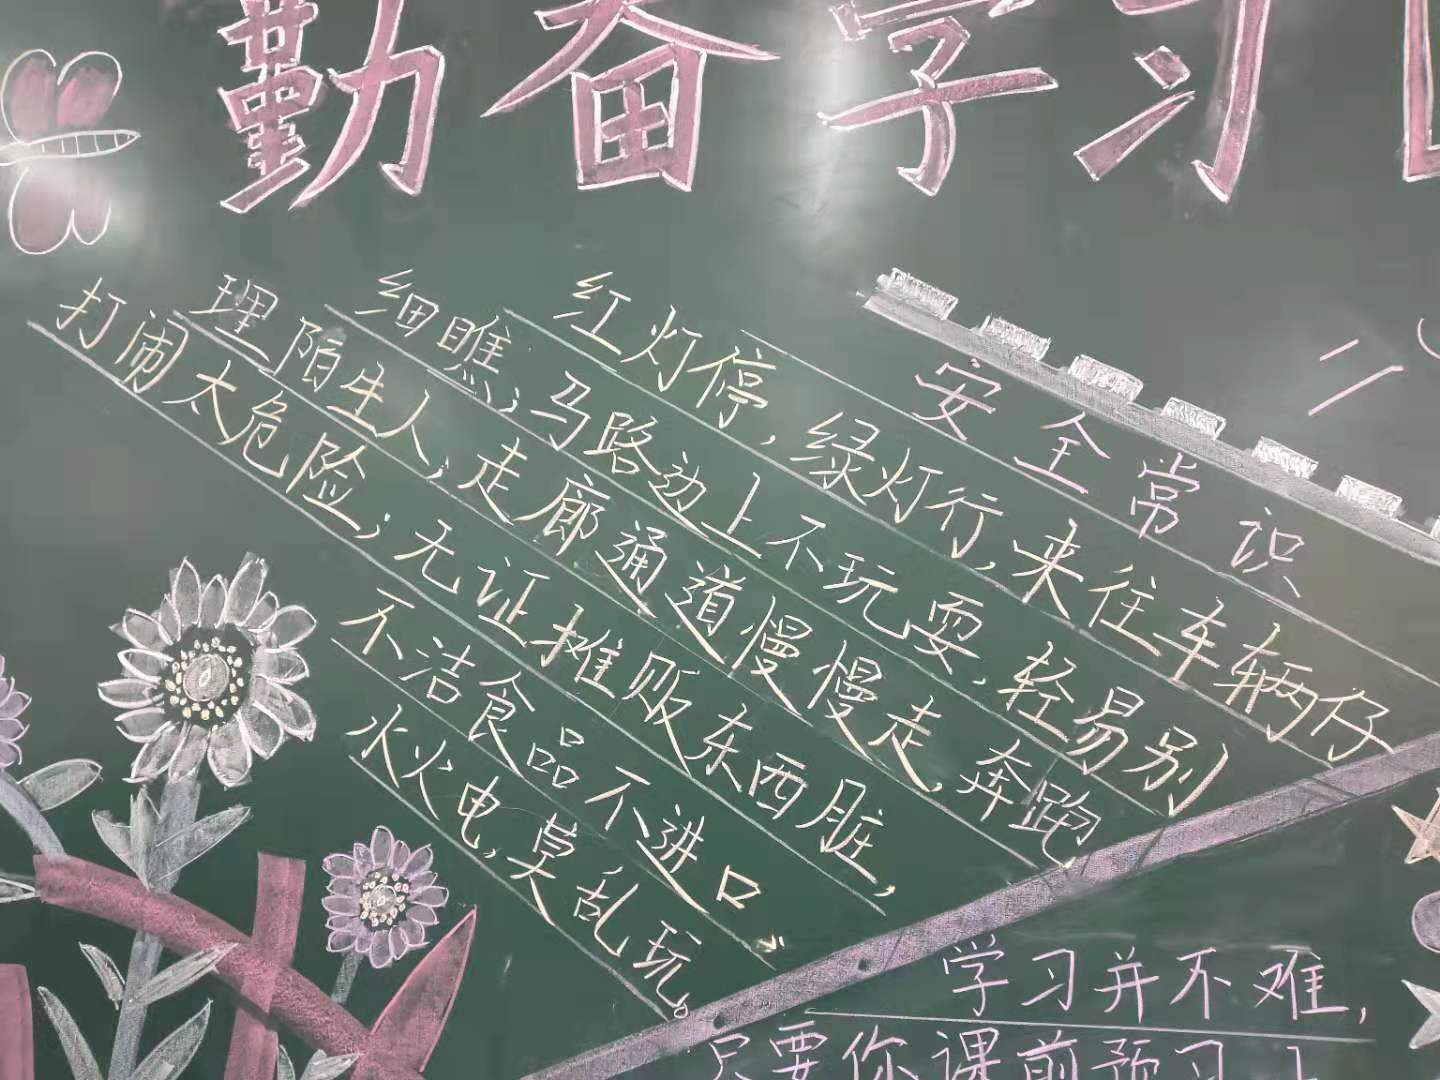 勤奋学习
安全常识
红灯停,绿灯行,来往车辆仔
细瞧;马路边上不玩耍,轻易别
理陌生人;走廊通道慢慢走,奔跑
打闹太危险;无证摊贩东西脏,
不洁食品不进口
水火电,莫乱玩。
学习并不难,
只要你课前预习